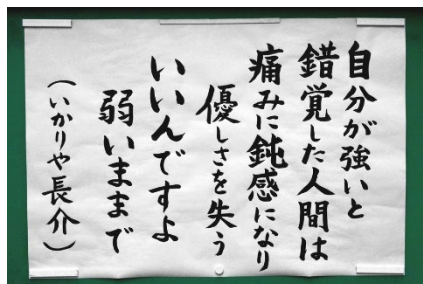 自分が強いと
錯覚した人間は
痛みに鈍感になり
優しさを失う
いいんですよ
弱いままで
（いかりや長介）